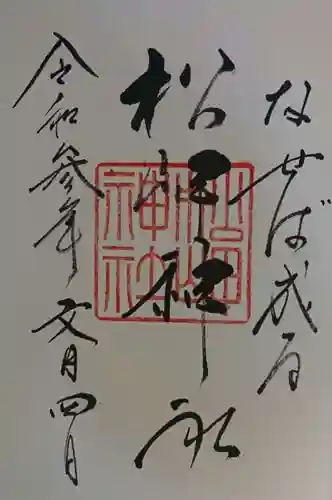 なせば成る
松岬神社
令和参年 文月四日
松岬神社